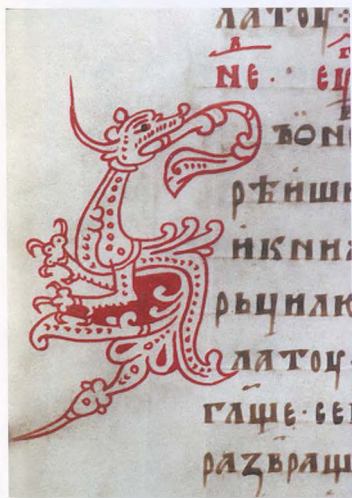 ЛАТОУ·
НЕ· ЕУ
ЪОНО
РѢИШИ
ИКНИ
РЬЦИЛЮ
ЛАТОУ·
ГЛШЕ·СЕ
РАЗВРАЩ